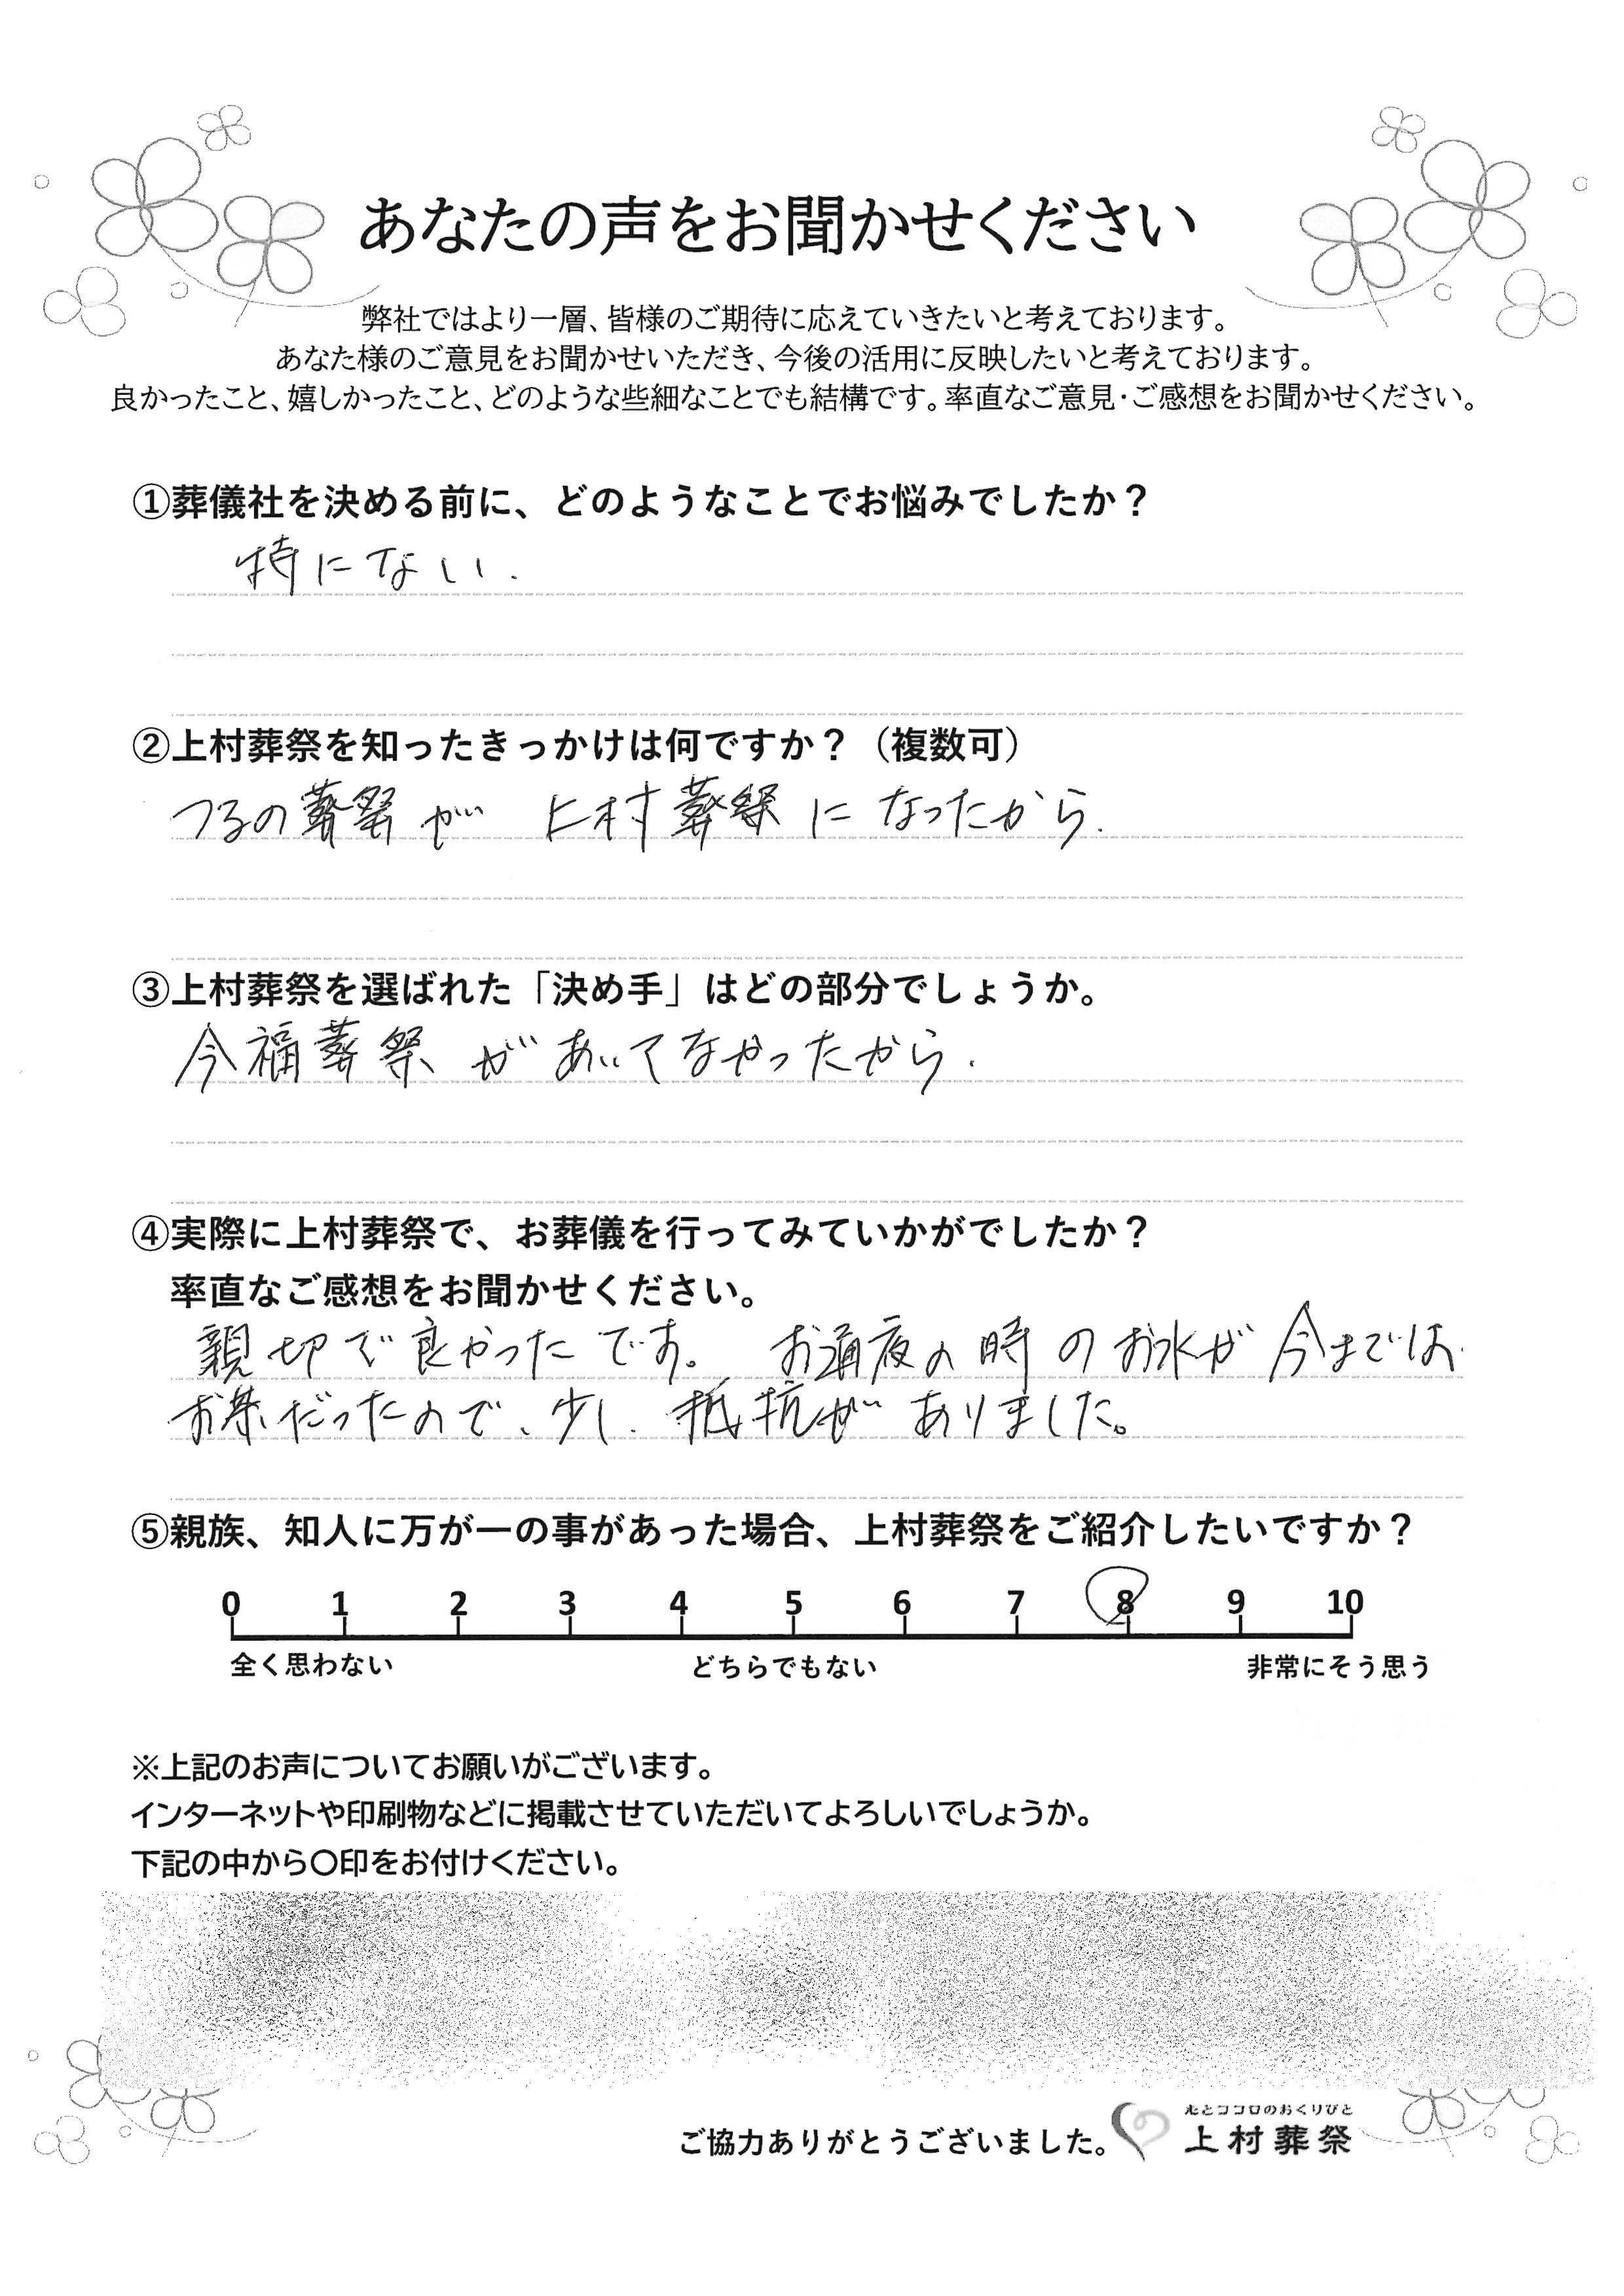 あなたの声をお聞かせください
弊社ではより一層、皆様のご期待に応えていきたいと考えております。
あなた様のご意見をお聞かせいただき、今後の活用に反映したいと考えております。
良かったこと、嬉しかったこと、どのような些細なことでも結構です。率直なご意見・ご感想をお聞かせください。
①葬儀社を決める前に、どのようなことでお悩みでしたか？
特にない.
②上村葬祭を知ったきっかけは何ですか？（複数可）
つるの葬祭が 上村葬祭になったから.
③上村葬祭を選ばれた「決め手」はどの部分でしょうか。
今福葬祭があいてなかったから.
④実際に上村葬祭で、お葬儀を行ってみていかがでしたか？
率直なご感想をお聞かせください。
親切で良かったです。 お通夜の時のお水が今までは
お茶だったので、少し抵抗がありました。
⑤親族、知人に万が一の事があった場合、上村葬祭をご紹介したいですか？
0 1 2 3 4 5 6 7 8 9 10
全く思わない どちらでもない 非常にそう思う
※上記のお声についてお願いがございます。
インターネットや印刷物などに掲載させていただいてよろしいでしょうか。
下記の中から〇印をお付けください。
心とココロのおくりびと
ご協力ありがとうございました。 上村葬祭